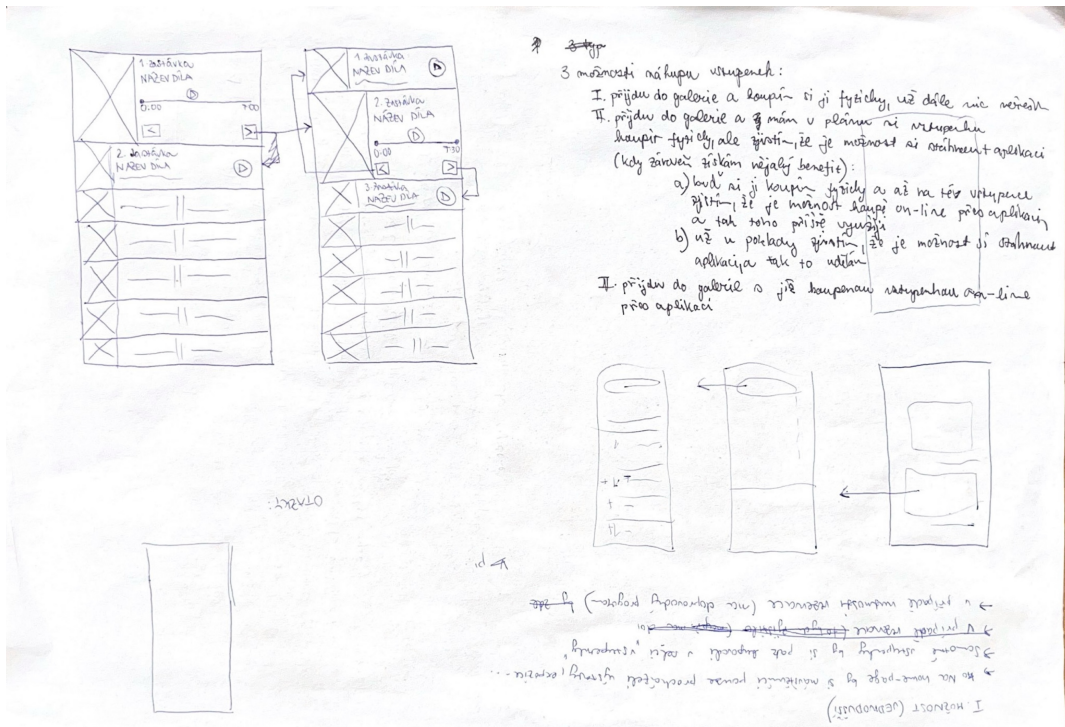 1. zastávka
NÁZEV DÍLA
0:00
<
>
2. zastávka
NÁZEV DÍLA
1. zastávka
NÁZEV DÍLA
2. zastávka
NÁZEV DÍLA
0:00
7:30
<
>
3. zastávka
NÁZEV DÍLA
3 typ
3 možnosti nákupu vstupenek:
I. přijdu do galerie a koupím si ji fyzicky, už dále nic neřeším
II. přijdu do galerie a mám v plánu si vstupenku
koupit fyzicky, ale zjistím, že je možnost si stáhnout aplikaci
(kdy zároveň získám nějaký benefit):
a) buď si ji koupím fyzicky a až na té vstupence
zjistím, že je možnost koupě on-line přes aplikaci,
a tak toho příště využiji
b) už u pokladny zjistím, že je možnost si stáhnout
aplikaci, a tak to udělám
přijdu do galerie s již koupenou vstupenkou on-line
přes aplikaci
OTÁZKY:
I. MOŽNOST (JEDNODUŠŠÍ)
→ Na home-page by si návštěvníci pouze procházeli výstavy, expozice...
→ Samotné vstupenky by si pak kupovali v sekci "vstupenky"
→ V případě rezervace
→ v případě nutnosti rezervace (na doprovodný program)